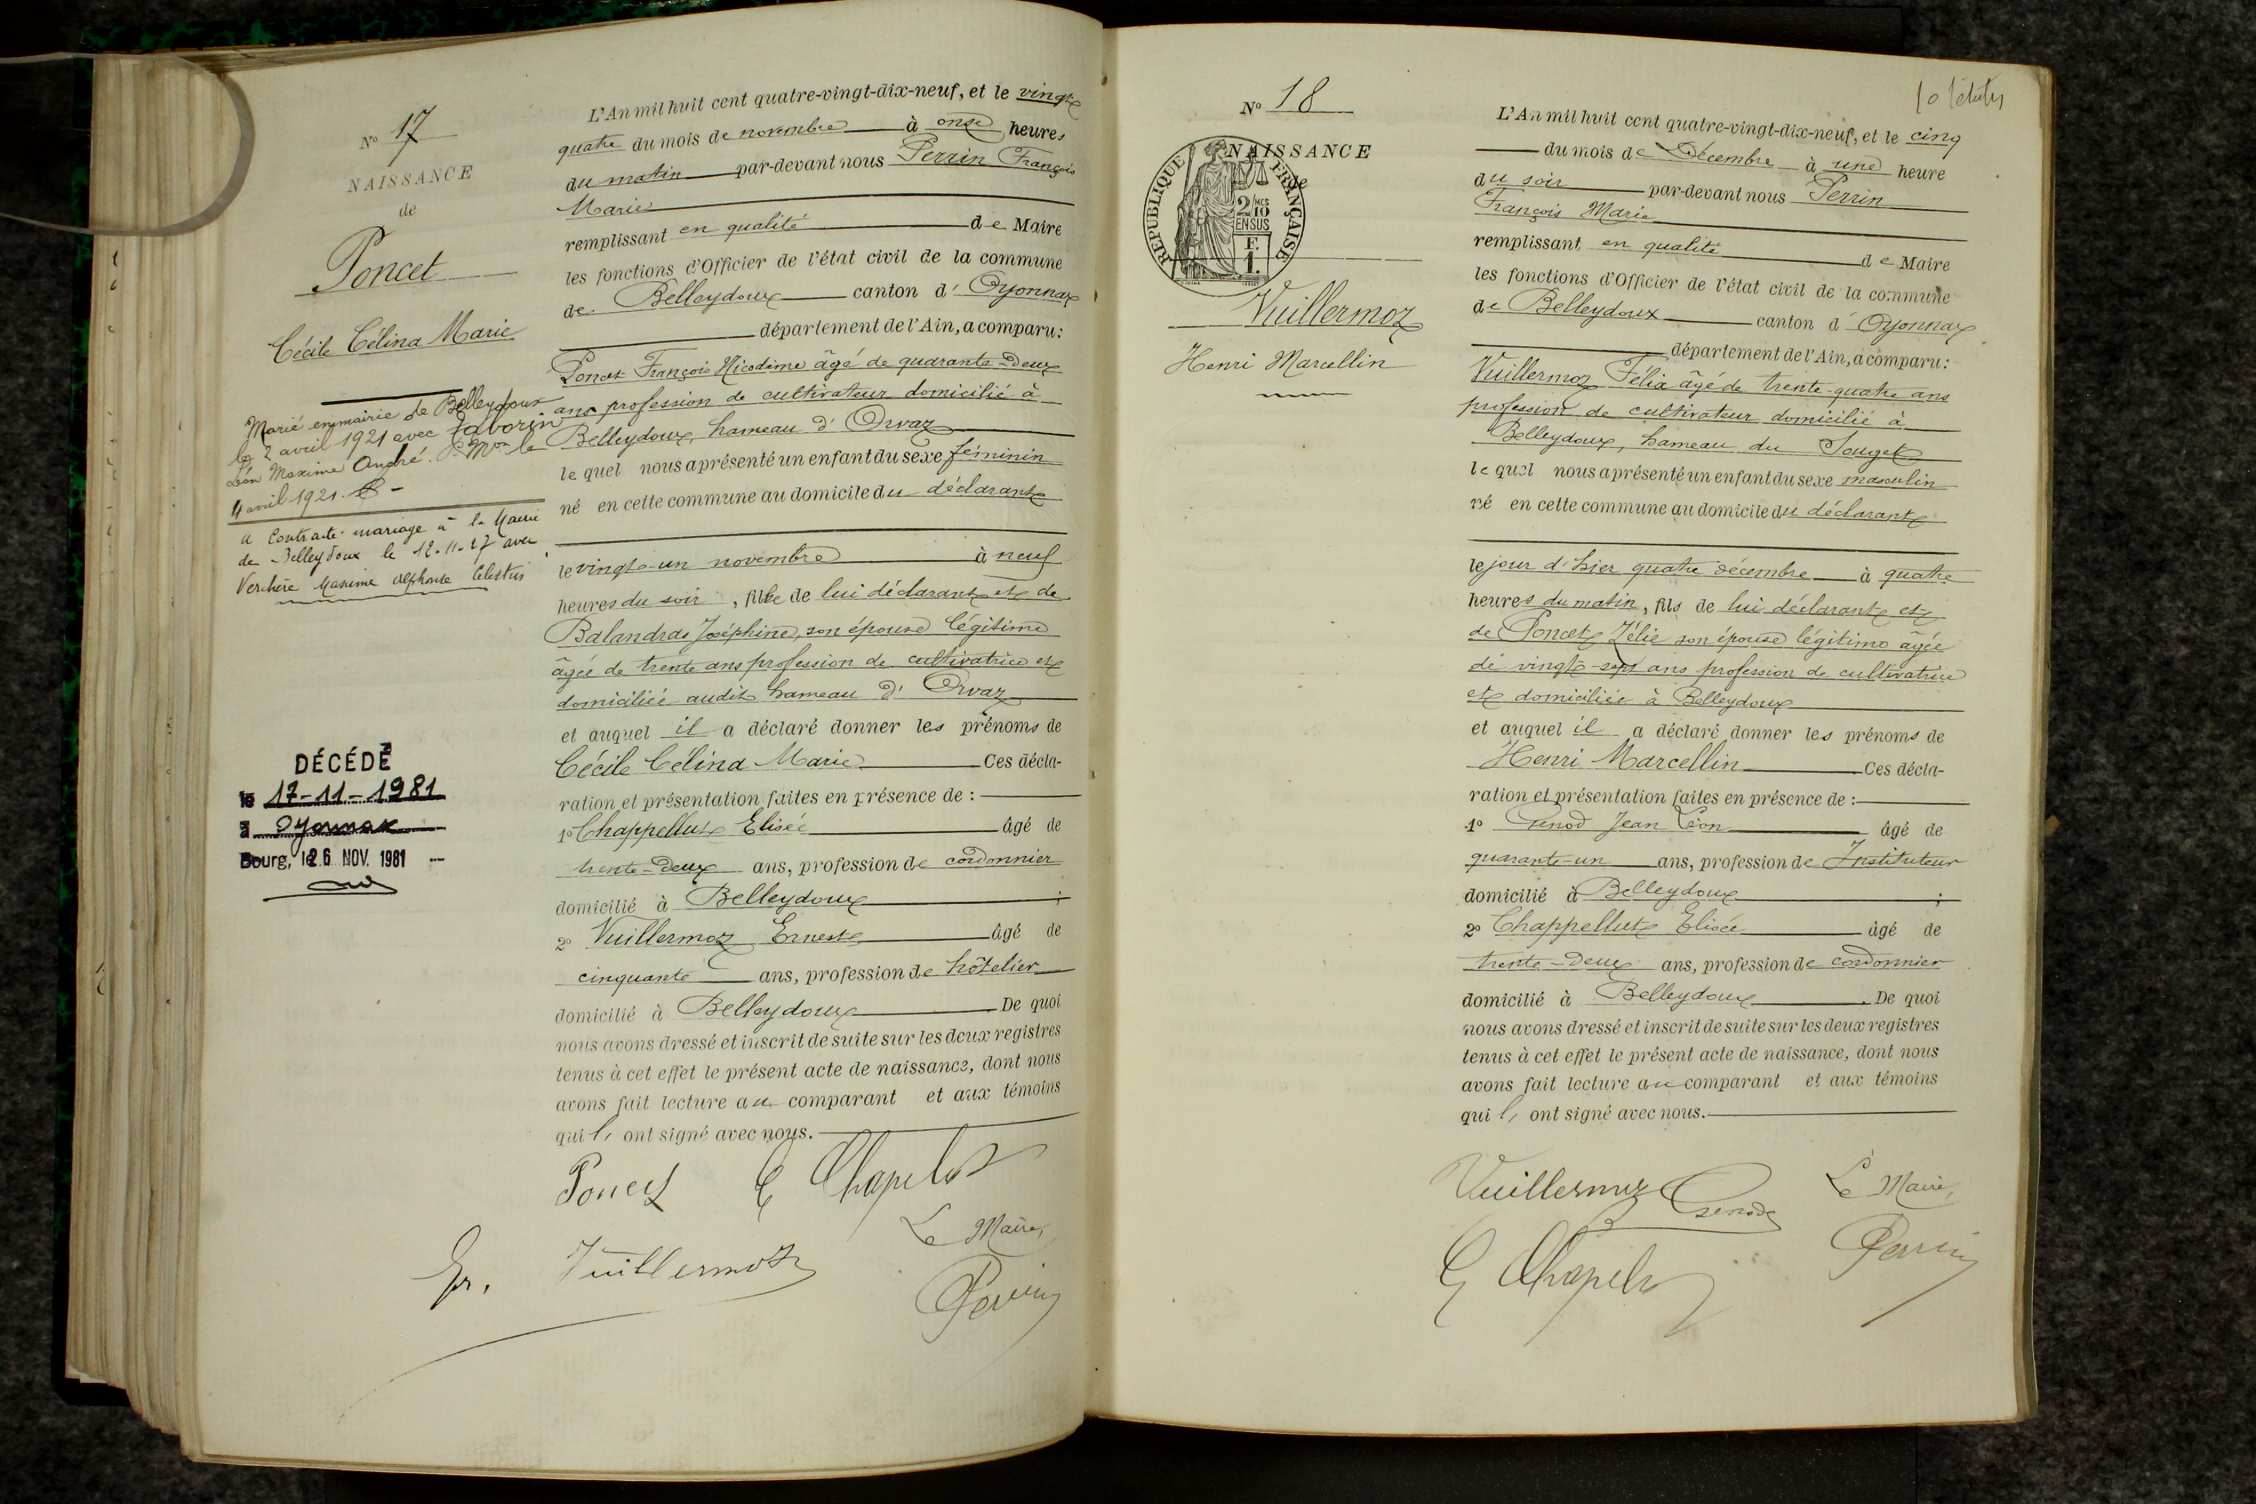 N° 17
NAISSANCE
de
Poncet
Cécile Célina Marie
Marié en mairie de Belleydoux
le 2 avril 1921 avec Javorin
Léon Maxime André. P. Mon le
4 avril 1921.
a contracté mariage à la Mairie
de Belleydoux le 12-11-27 avec
Verchère Maxime Alphonse Célestin
DÉCÉDÉE
le 17-11-1981
à Oyonnax
Bourg, le 26 NOV. 1981
L'An mil huit cent quatre-vingt-dix-neuf, et le vingt
quatre du mois de novembre à onze heures
du matin par-devant nous Perrin François
Marie
remplissant en qualité de Maire
les fonctions d'Officier de l'état civil de la commune
de Belleydoux canton d'Oyonnax
département de l'Ain, a comparu:
Poncet François Nicodème âgé de quarante-deux
ans profession de cultivateur domicilié à
Belleydoux, hameau d'Orvaz
le quel nous a présenté un enfant du sexe féminin
né en cette commune au domicile du déclarant
le vingt-un novembre à neuf
heures du soir, fille de lui déclarant et de
Balandras Joséphine, son épouse légitime
âgée de trente ans profession de cultivatrice et
domiciliée audit hameau d'Orvaz
et auquel il a déclaré donner les prénoms de
Cécile Célina Marie Ces décla-
ration et présentation faites en présence de :
1° Chappellut Elisée âgé de
trente-deux ans, profession de cordonnier
domicilié à Belleydoux ;
2° Vuillermoz Ernest âgé de
cinquante ans, profession de hôtelier
domicilié à Belleydoux De quoi
nous avons dressé et inscrit de suite sur les deux registres
tenus à cet effet le présent acte de naissance, dont nous
avons fait lecture au comparant et aux témoins
qui l' ont signé avec nous.
Poncet E Chapelut
Le Maire,
Er. Vuillermoz
Perrin
N° 18
NAISSANCE
de
REPUBLIQUE FRANÇAISE
2/10
EN SUS
F.
1.
Vuillermoz
Henri Marcellin
L'An mil huit cent quatre-vingt-dix-neuf, et le cinq
du mois de Décembre à une heure
du soir par-devant nous Perrin
François Marie
remplissant en qualité de Maire
les fonctions d'Officier de l'état civil de la commune
de Belleydoux canton d'Oyonnax
département de l'Ain, a comparu:
Vuillermoz Félix âgé de trente-quatre ans
profession de cultivateur domicilié à
Belleydoux, hameau du Souget
le quel nous a présenté un enfant du sexe masculin
né en cette commune au domicile du déclarant
le jour d'hier quatre décembre à quatre
heures du matin, fils de lui déclarant et
de Poncet Zélie son épouse légitime âgée
de vingt-sept ans profession de cultivatrice
et domiciliée à Belleydoux
et auquel il a déclaré donner les prénoms de
Henri Marcellin Ces décla-
ration et présentation faites en présence de :
1° Genod Jean Léon âgé de
quarante-un ans, profession de Instituteur
domicilié à Belleydoux ;
2° Chappellut Elisée âgé de
trente-deux ans, profession de cordonnier
domicilié à Belleydoux. De quoi
nous avons dressé et inscrit de suite sur les deux registres
tenus à cet effet le présent acte de naissance, dont nous
avons fait lecture au comparant et aux témoins
qui l' ont signé avec nous.
Vuillermoz Genod Le Maire,
E Chapelut Perrin